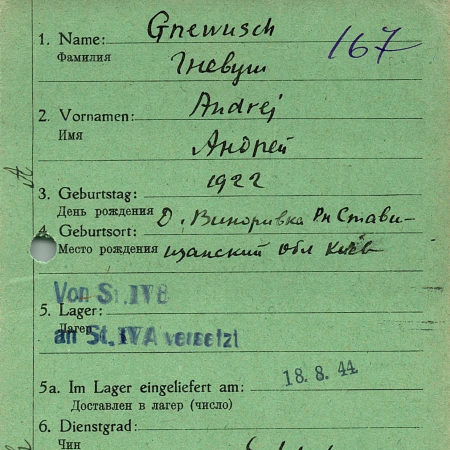 Gnewusch
1. Name:
Фамилия
Гневуш
167
2. Vornamen: Andrej
Имя
Андрей
3. Geburtstag: 1922
День рождения
4. Geburtsort: Д. Виноривка Рн Стави-
Место рождения щанский обл Киев
Von St. IV B
5. Lager:
Лагер
an St. IV A versetzt
5a. Im Lager eingeliefert am: 18. 8. 44
Доставлен в лагер (число)
6. Dienstgrad:
Чин